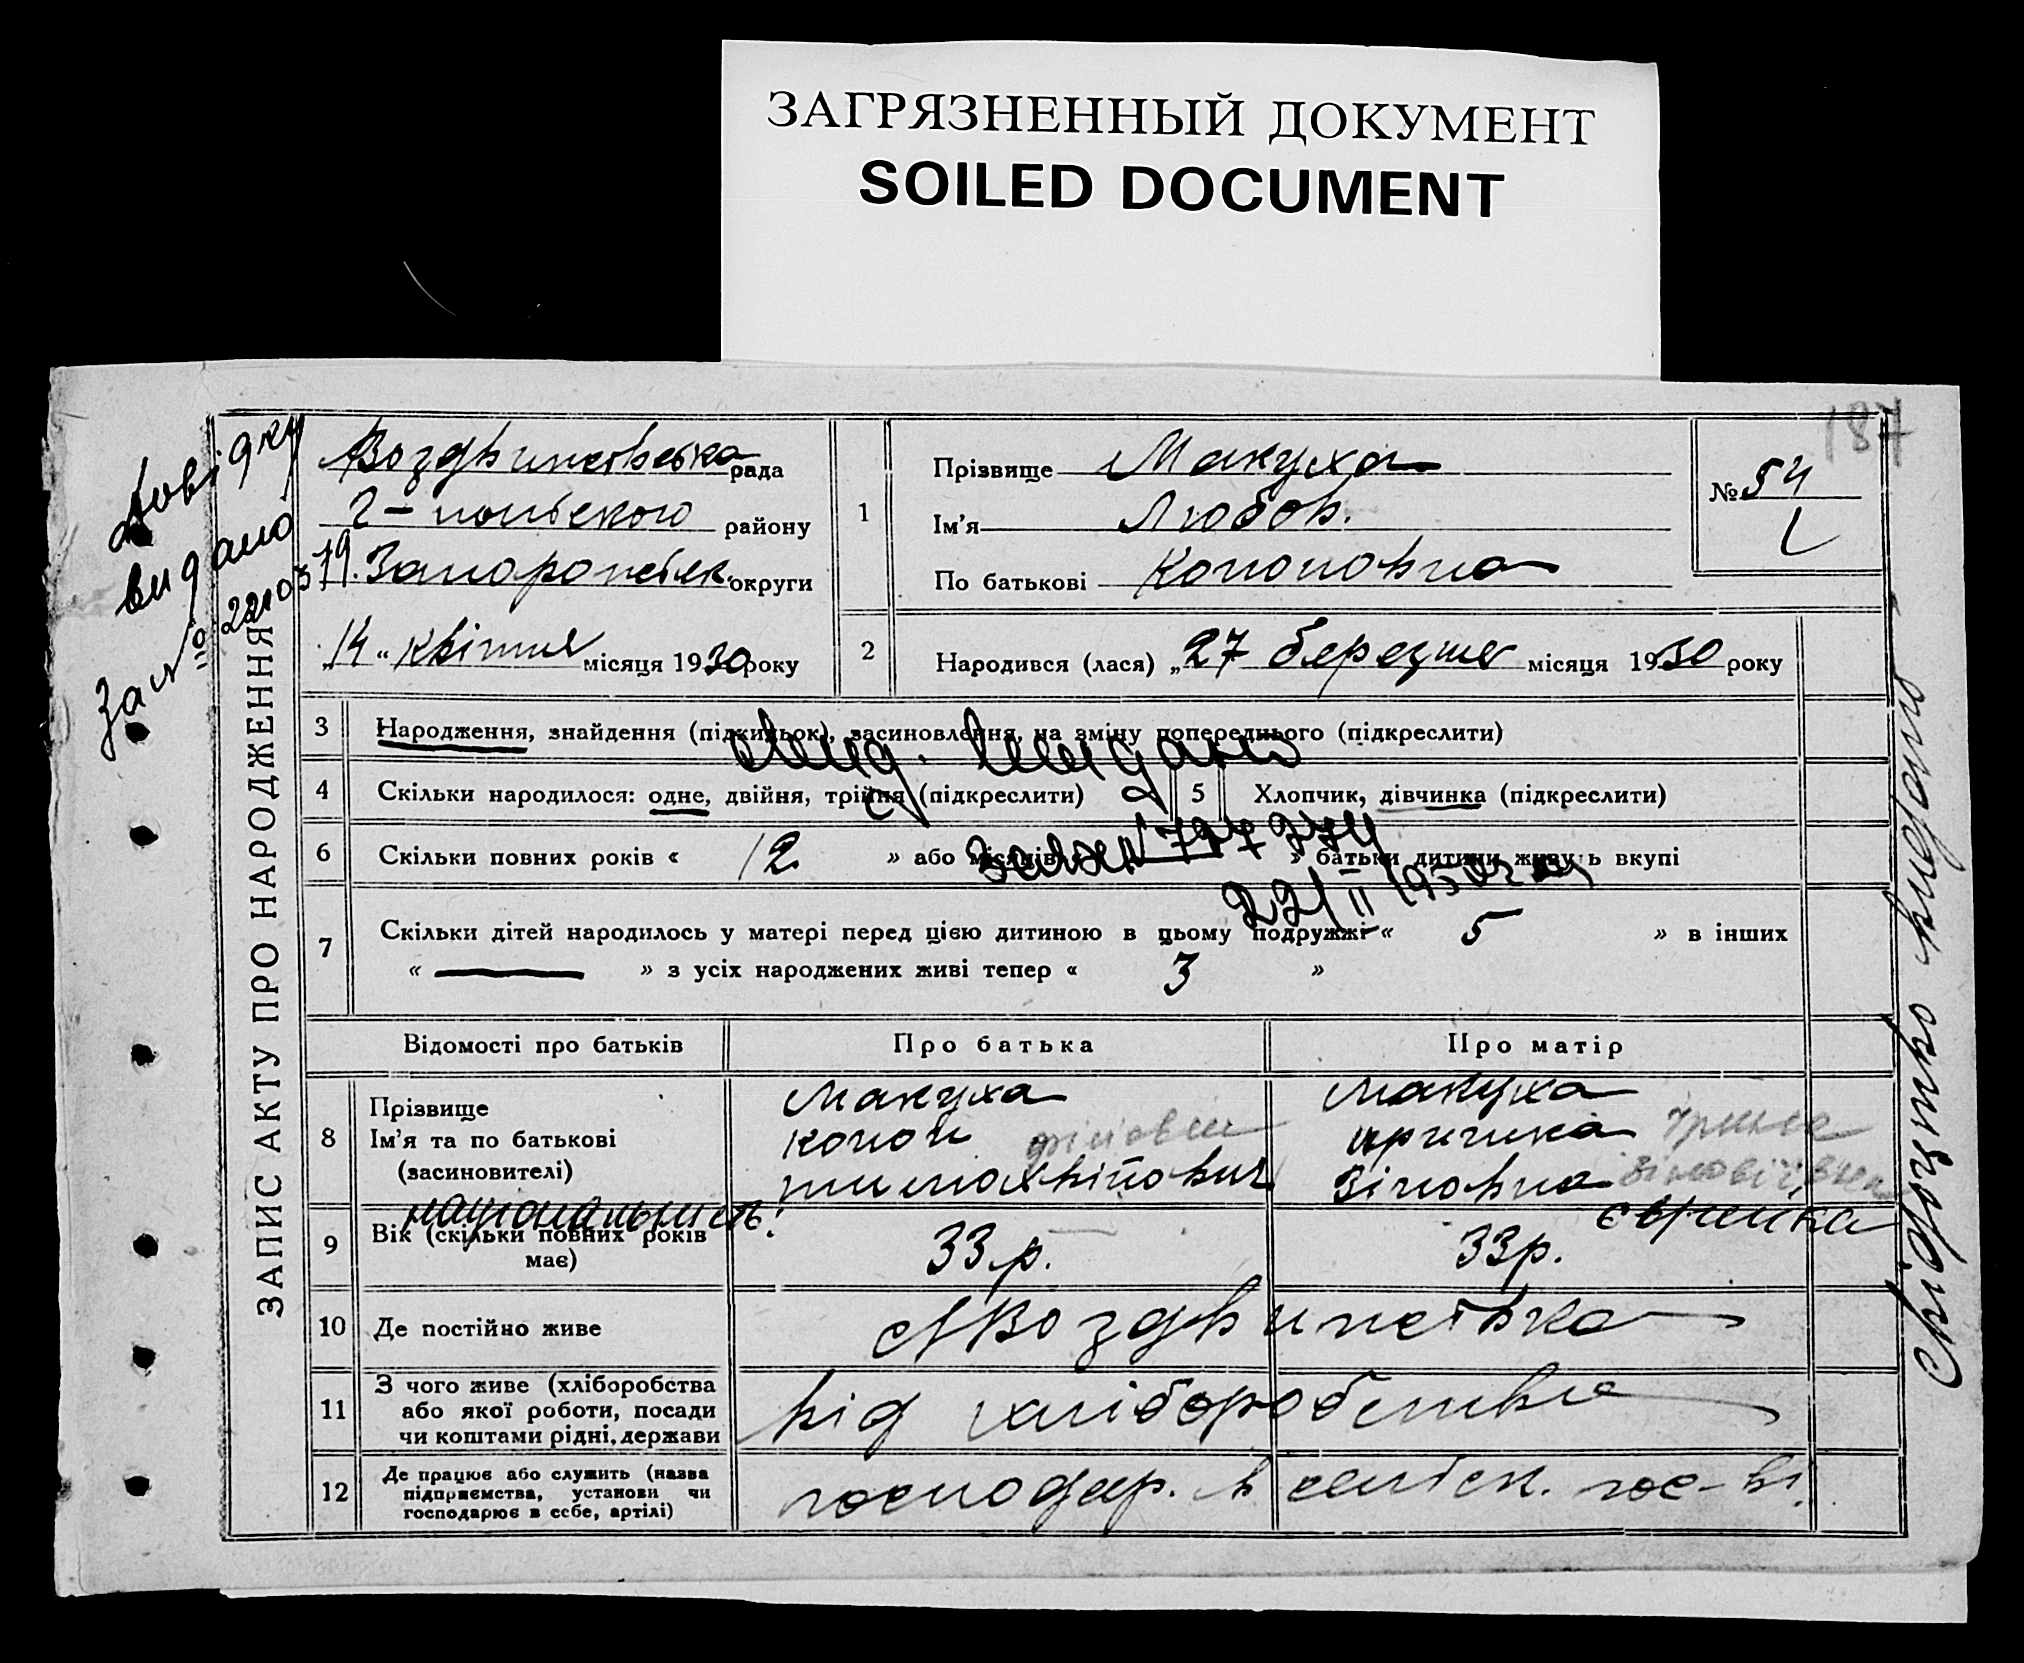 ЗАГРЯЗНЕННЫЙ ДОКУМЕНТ
SOILED DOCUMENT
187
Довідку
видано
За №
ЗАПИС АКТУ ПРО НАРОДЖЕННЯ
Воздвижевська рада
Г-польского району
Запорожськ. округи
„14“ квітня місяця 1930 року
1
Прізвище Макуха
Ім'я Любов.
По батькові Кононовна
№ 54
2
Народився (лася) „27 березня місяця 1930 року
3 Народження, знайдення (підкидьок), засиновлення, на зміну попереднього (підкреслити)
4 Скільки народилося: одне, двійня, трійня (підкреслити)
5 Хлопчик, дівчинка (підкреслити)
6 Скільки повних років « 12 » або місяців » батьки дитини живуть вкупі
7 Скільки дітей народилось у матері перед цією дитиною в цьому подружжі « 5 » в інших
« — » з усіх народжених живі тепер « 3 »
Відомості про батьків
Про батька
Про матір
8 Прізвище
Ім'я та по батькові
(засиновителі)
Макуха
Конон
Макуха
Зіновна
національність:
9 Вік (скільки повних років
має)
33 р.
33р.
10 Де постійно живе
Воздвижевка
11 З чого живе (хліборобства
або якої роботи, посади
чи коштами рідні, держави
від хліборобства
12 Де працює або служить (назва
підприємства, установи чи
господарює в себе, артілі)
господар. в сільськ. гос-ві.
Свідоцтво видано